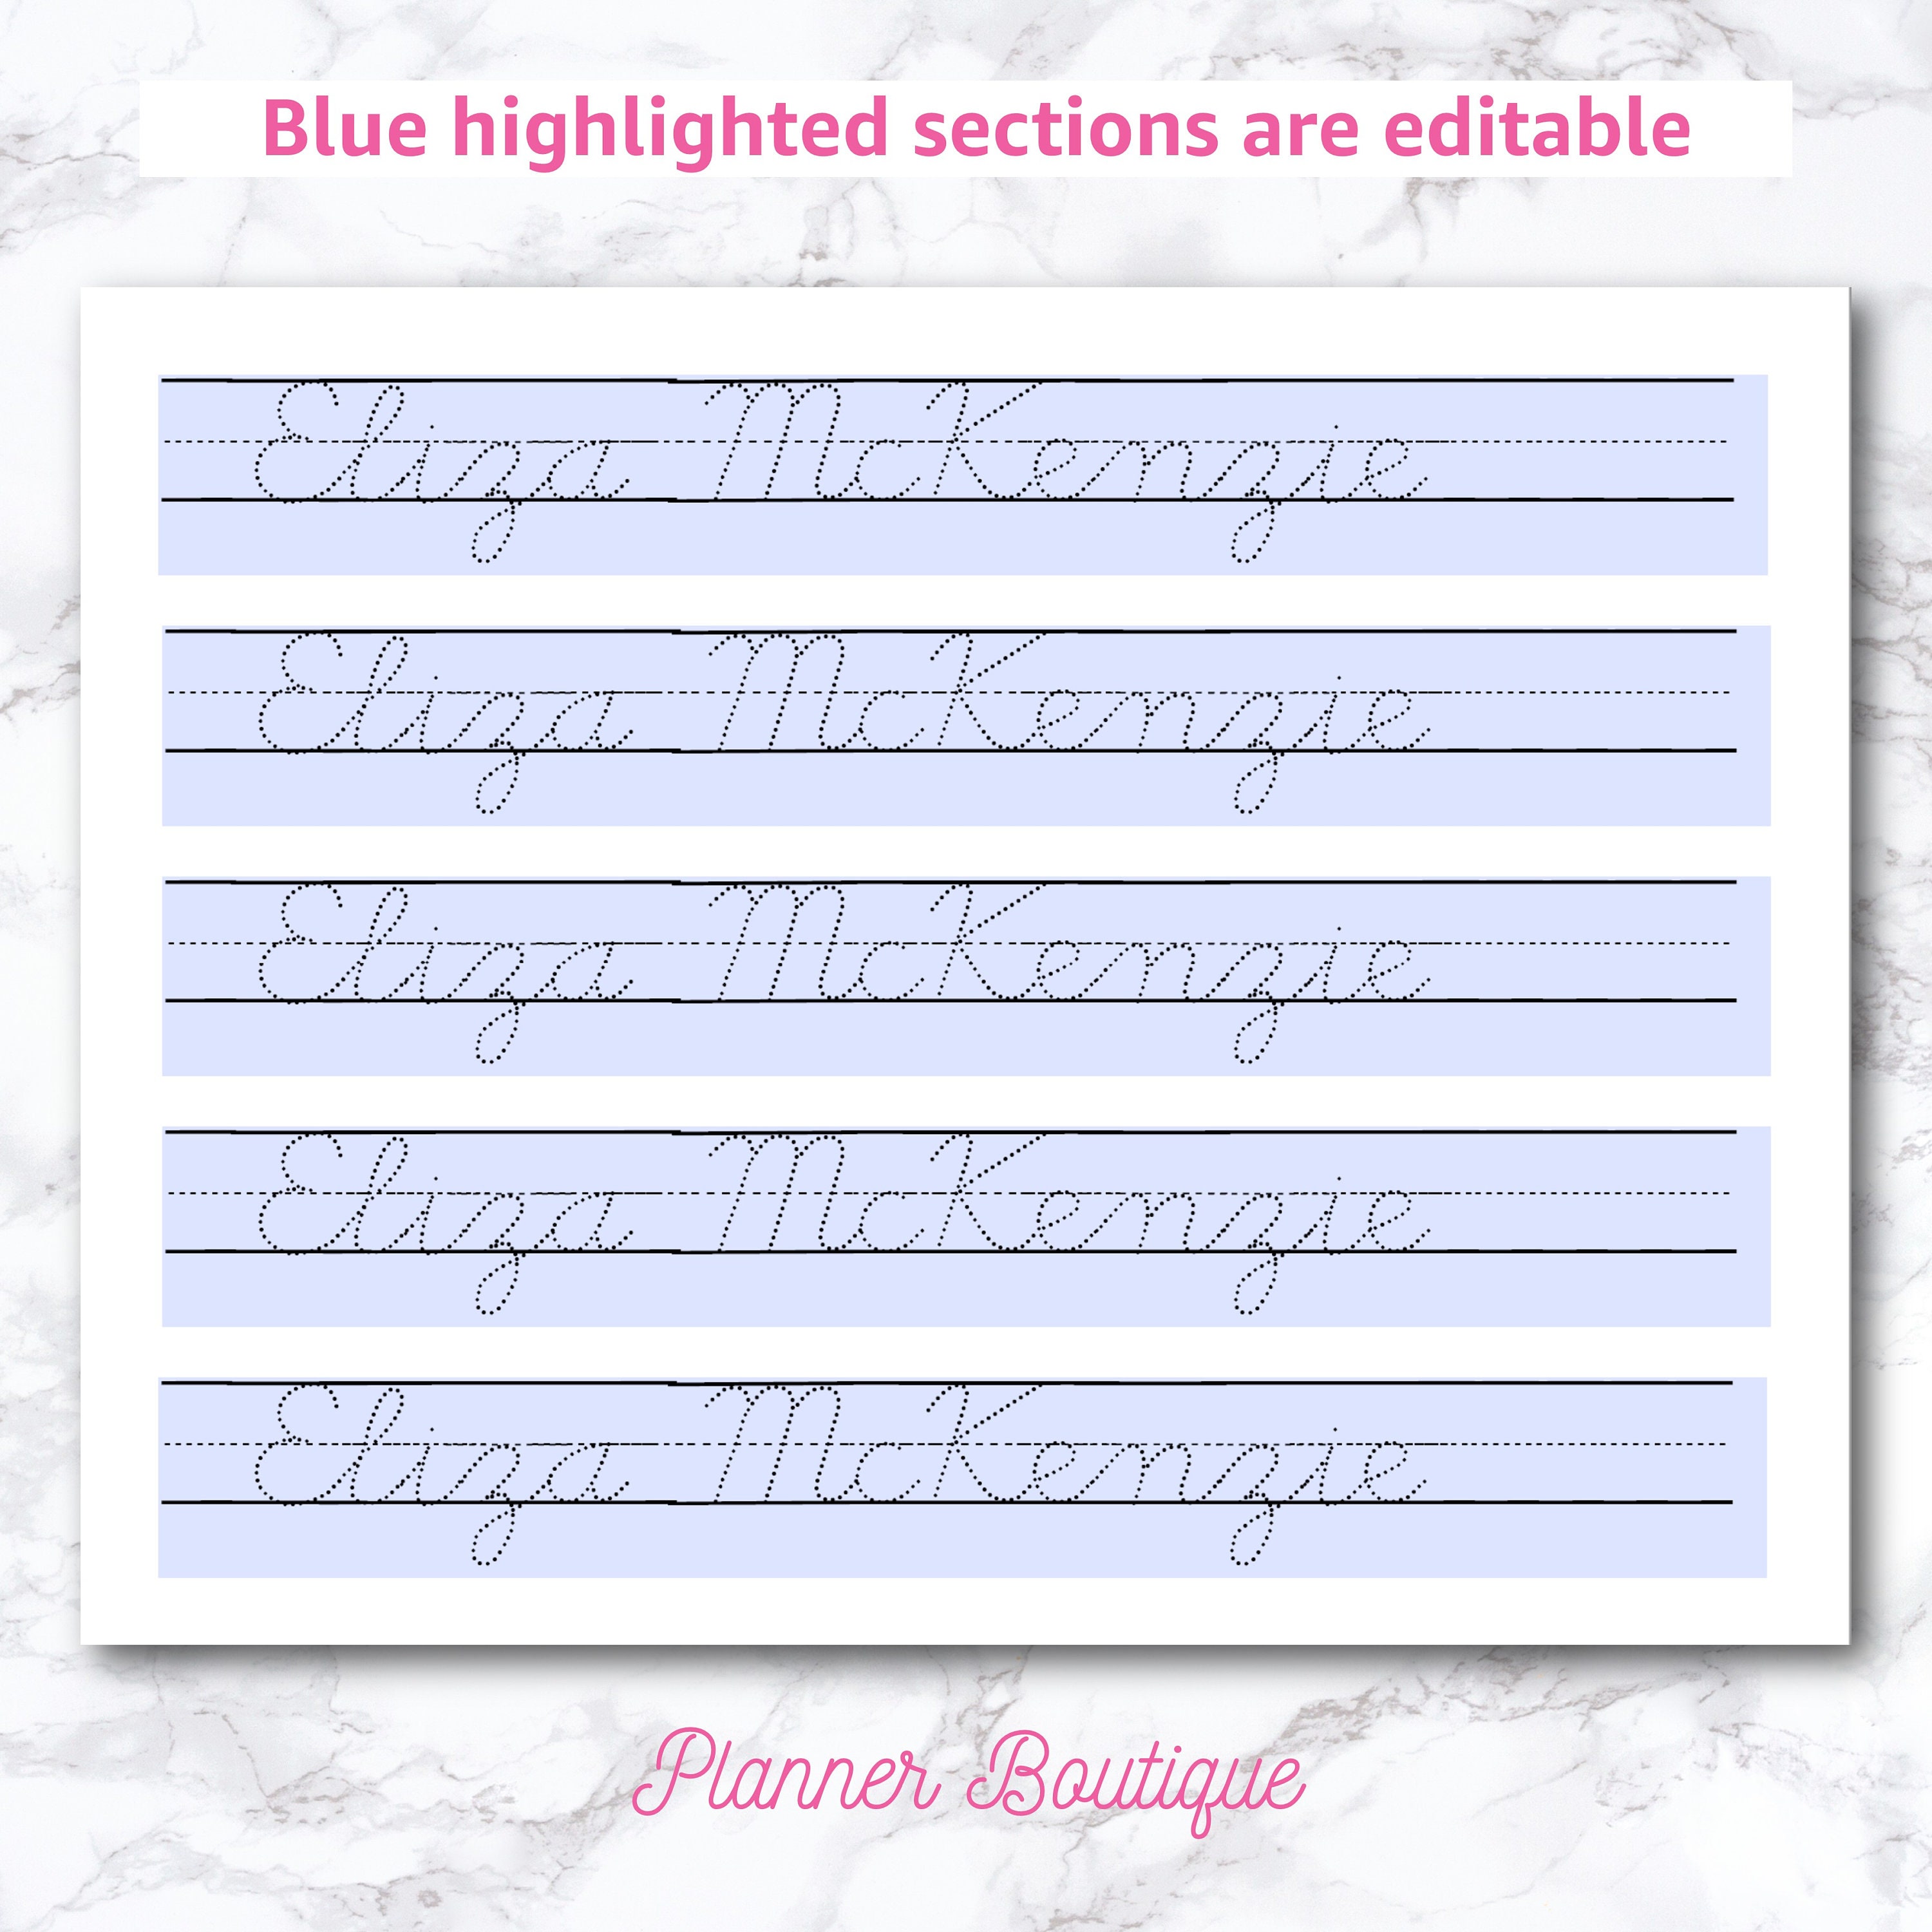 Blue highlighted sections are editable
Eliza McKenzie
Eliza McKenzie
Eliza McKenzie
Eliza McKenzie
Eliza McKenzie
Planner Boutique